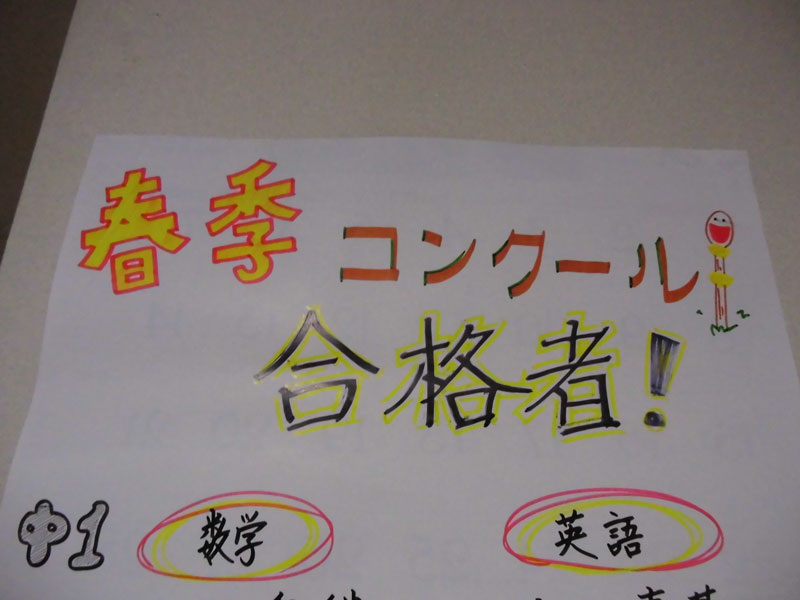 春季コンクール
合格者!
中1 数学 英語